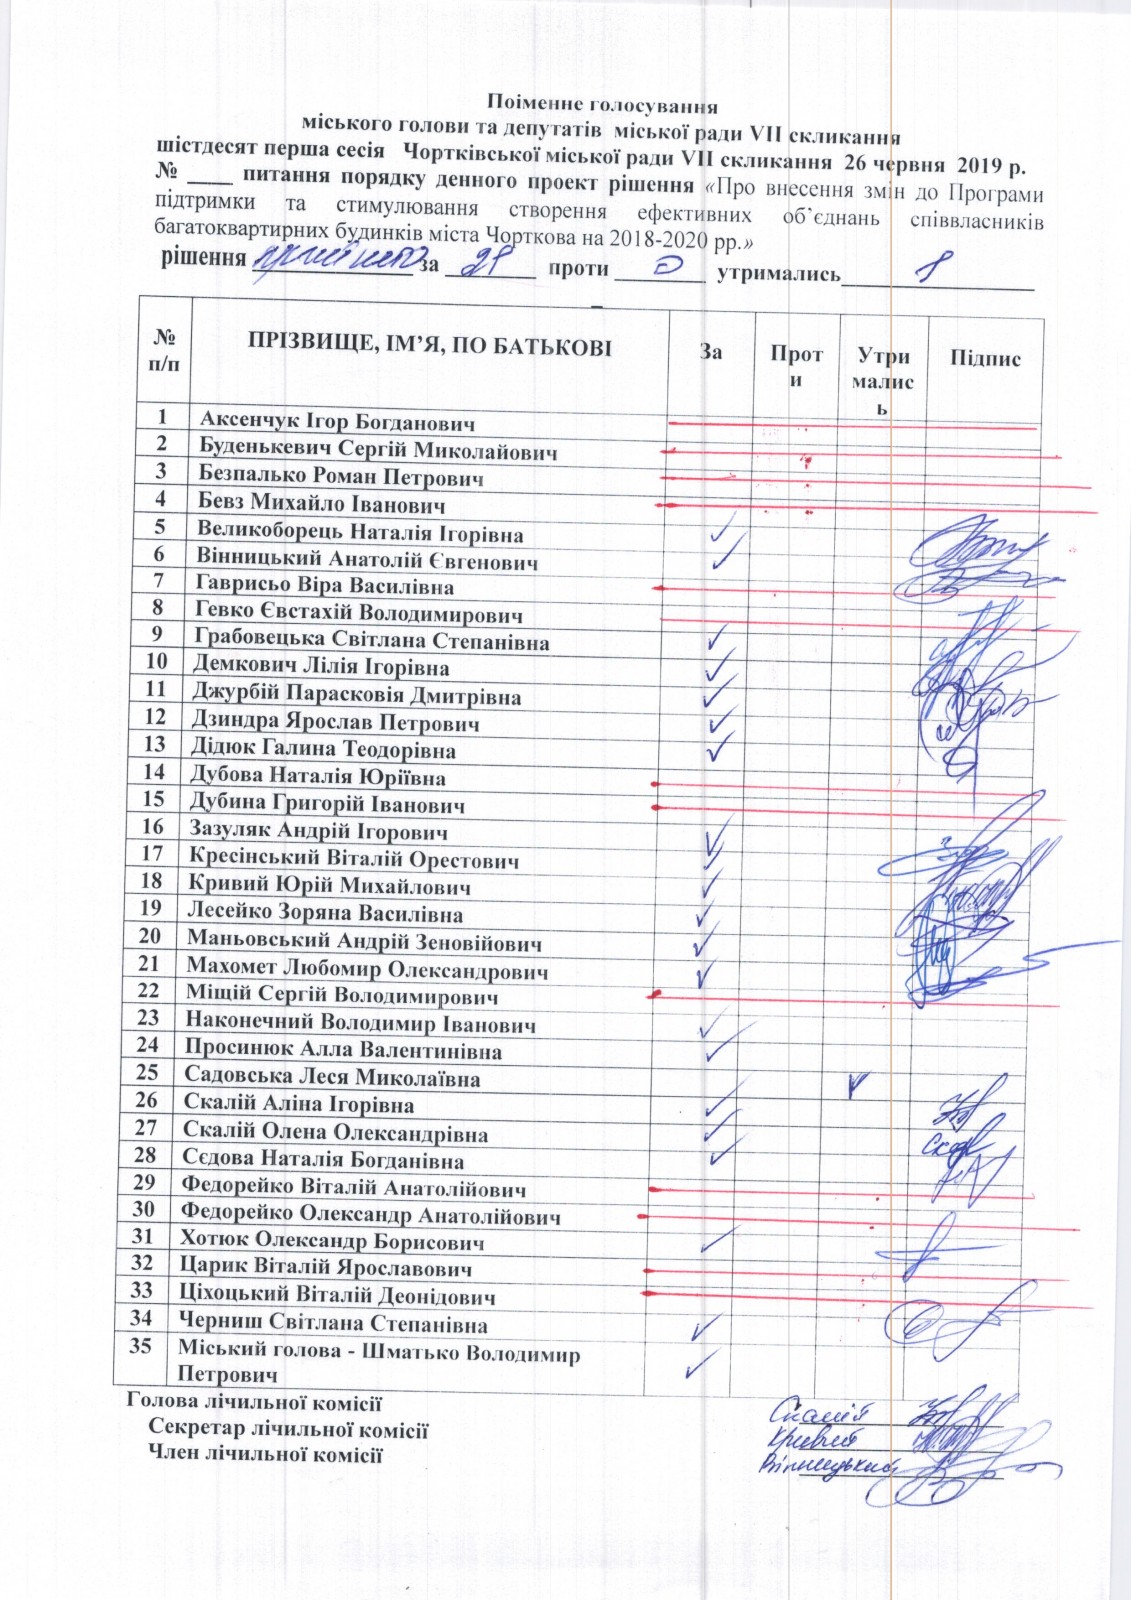 Поіменне голосування
міського голови та депутатів міської ради VII скликання
шістдесят перша сесія Чортківської міської ради VII скликання 26 червня 2019 р.
№ ____ питання порядку денного проект рішення «Про внесення змін до Програми
підтримки та стимулювання створення ефективних об’єднань співвласників
багатоквартирних будинків міста Чорткова на 2018-2020 рр.»
рішення прийнято за 21 проти 0 утримались 1
№ п/п ПРІЗВИЩЕ, ІМ’Я, ПО БАТЬКОВІ За Проти Утрималис ь Підпис
1 Аксенчук Ігор Богданович
2 Буденькевич Сергій Миколайович
3 Безпалько Роман Петрович
4 Бевз Михайло Іванович
5 Великоборець Наталія Ігорівна
6 Вінницький Анатолій Євгенович
7 Гаврисьо Віра Василівна
8 Гевко Євстахій Володимирович
9 Грабовецька Світлана Степанівна
10 Демкович Лілія Ігорівна
11 Джурбій Парасковія Дмитрівна
12 Дзиндра Ярослав Петрович
13 Дідюк Галина Теодорівна
14 Дубова Наталія Юріївна
15 Дубина Григорій Іванович
16 Зазуляк Андрій Ігорович
17 Кресінський Віталій Орестович
18 Кривий Юрій Михайлович
19 Лесейко Зоряна Василівна
20 Маньовський Андрій Зеновійович
21 Махомет Любомир Олександрович
22 Міщій Сергій Володимирович
23 Наконечний Володимир Іванович
24 Просинюк Алла Валентинівна
25 Садовська Леся Миколаївна
26 Скалій Аліна Ігорівна
27 Скалій Олена Олександрівна
28 Сєдова Наталія Богданівна
29 Федорейко Віталій Анатолійович
30 Федорейко Олександр Анатолійович
31 Хотюк Олександр Борисович
32 Царик Віталій Ярославович
33 Ціхоцький Віталій Деонідович
34 Черниш Світлана Степанівна
35 Міський голова - Шматько Володимир
Петрович
Голова лічильної комісії Скалій
Секретар лічильної комісії Кривий
Член лічильної комісії Вінницький